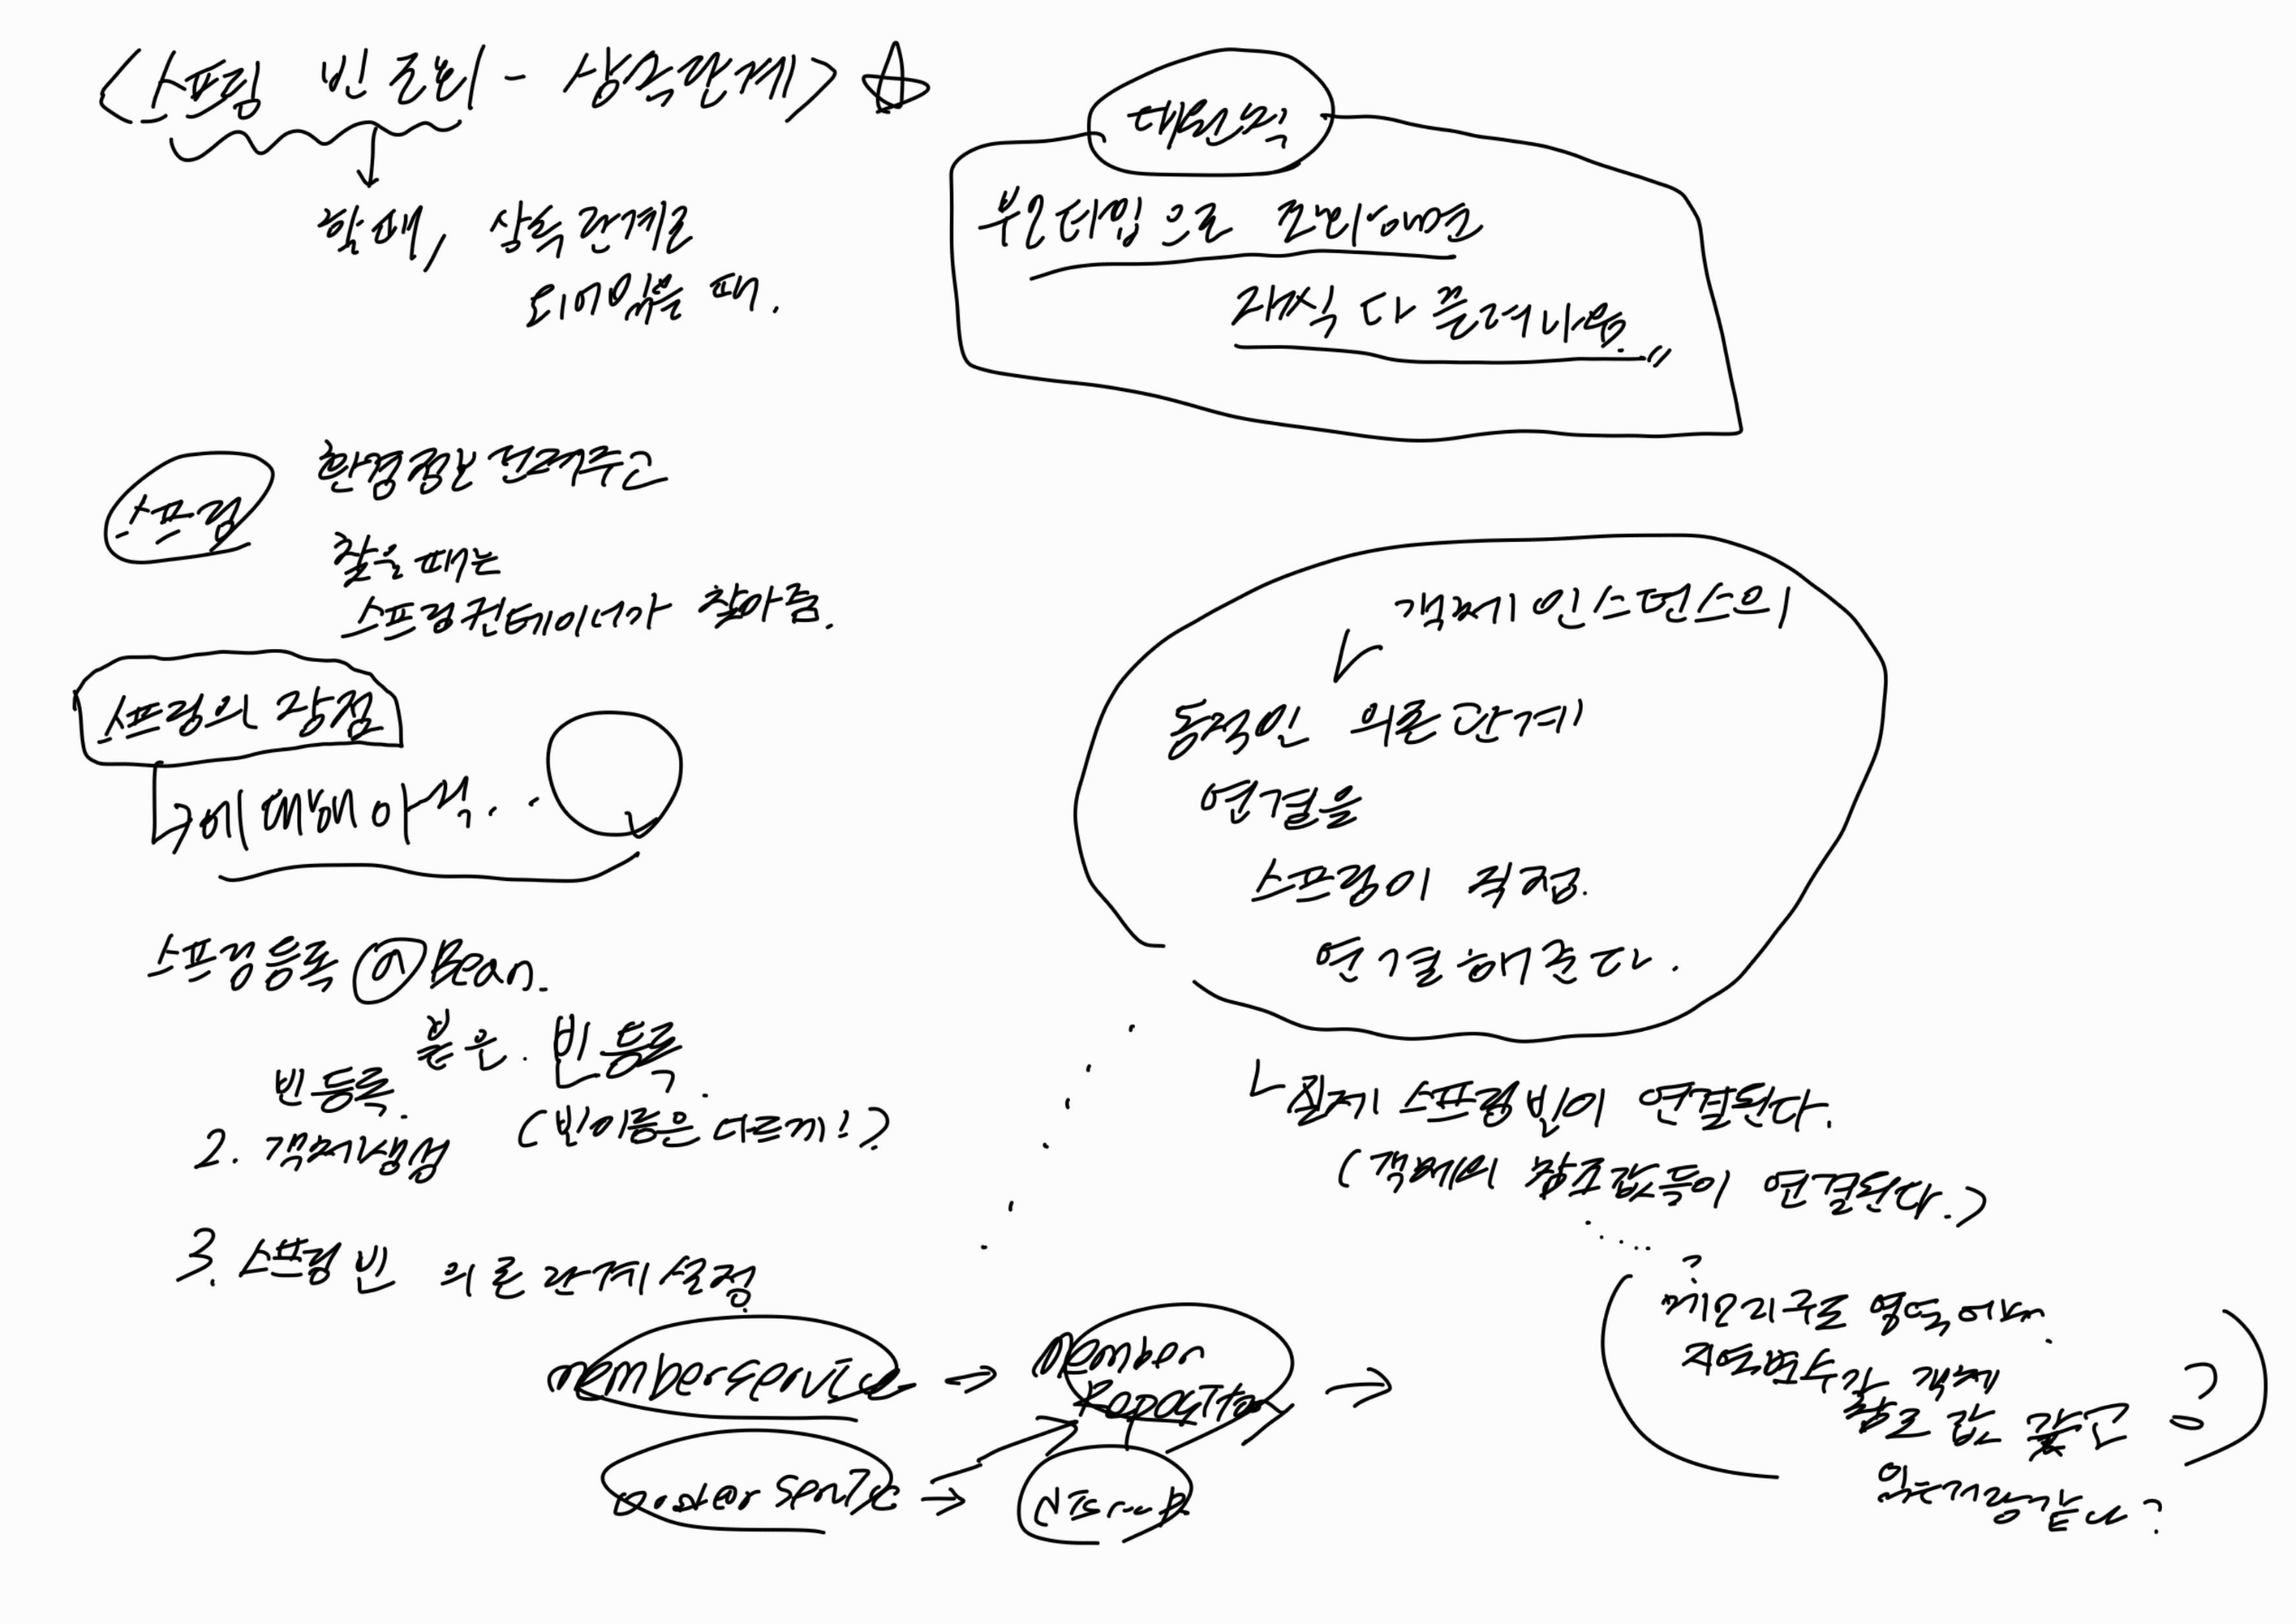 <스프링 빈 조회 - 상속관계> ☆
할 때, 상속 관계로
되어있을 때.
대원칙
부모타입으로 조회하면
자식 다 끌려나옴.
스프링
환경정보
찾을 때는
스프링컨테이너가 찾아줌.
스프링의 장점
에 대해
스프링등록 @Bean.
붙은. 빈 등록.
빈 등록.
(빈이름은 다르게!)
2. 객체생성
3. 스프링 빈 의존관계설정
memberservice → Member
Repository →
orderservice →
객체 인스턴스의
동적인 의존관계
연결을
스프링이 직접.
연결해준다.
실제 스프링 빈이 연결된다.
(객체의 참조값들이 연결된다.)
?
지역변수가
객체
참조 값 갖고
있는거랑같나?